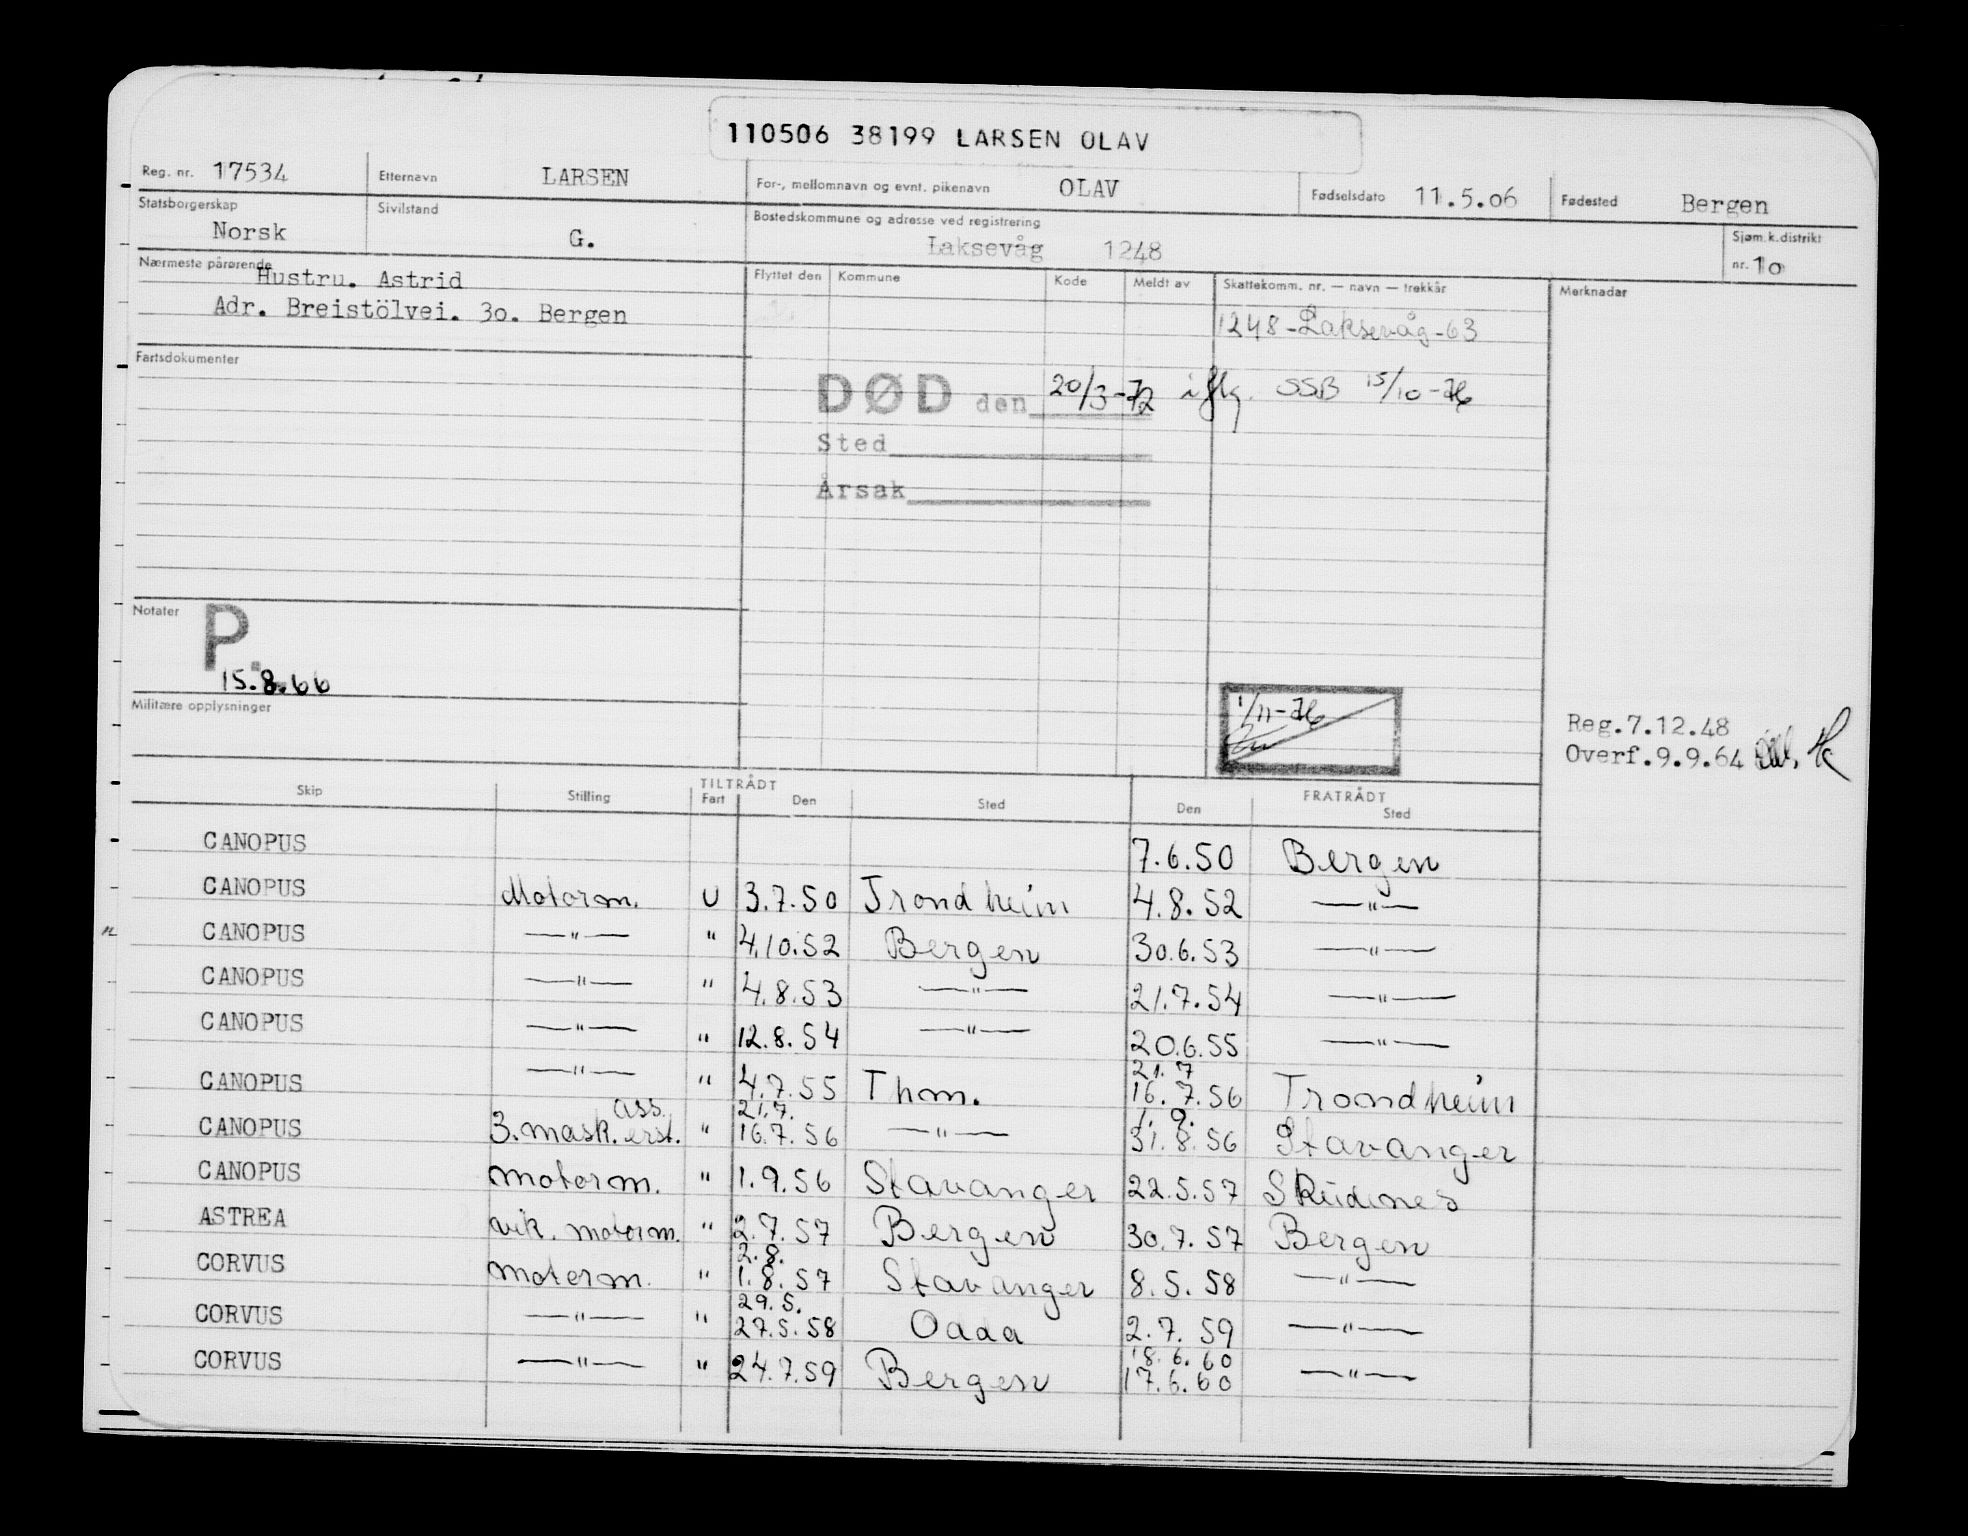 110506 38199 LARSEN OLAV
Reg. nr. 17534 Etternavn LARSEN For-, mellomnavn og evnt. pikenavn OLAV Fødselsdato 11.5.06 Fødested Bergen
Statsborgerskap Norsk Sivilstand G. Bostedskommune og adresse ved registrering Laksevåg 1248 Sjøm.k.distrikt nr. 10
Nærmeste pårørende Hustru. Astrid
Adr. Breistölvei. 30. Bergen
Flyttet den Kommune Kode Meldt av Skattekomm. nr. — navn — trekkår Merknader
1248-Laksevåg-63
Fartsdokumenter
DØD den 20/3-72 iflg. SSB 15/10-76
Sted
Årsak
Notater
P.
15.8.66
Militære opplysninger
1/11-76
Reg.7.12.48
Overf.9.9.64
TILTRÅDT FRATRÅDT
Skip Stilling Fart Den Sted Den Sted
CANOPUS 7.6.50 Bergen
CANOPUS Motorm. U 3.7.50 Trondheim 4.8.52 —"—
CANOPUS —"— " 4.10.52 Bergen 30.6.53 —"—
CANOPUS —"— " 4.8.53 —"— 21.7.54 —"—
CANOPUS —"— " 12.8.54 —"— 20.6.55 —"—
21.7
CANOPUS —"— " 4.7.55 Thm. 16.7.56 Trondheim
ass. 21.7. 1.9.
CANOPUS 3.mask. erst. " 16.7.56 —"— 31.8.56 Stavanger
CANOPUS motorm. " 1.9.56 Stavanger 22.5.57 Skudenes
ASTREA vik. motorm. " 2.7.57 Bergen 30.7.57 Bergen
2.8.
CORVUS motorm. " 1.8.57 Stavanger 8.5.58 —"—
29.5.
CORVUS —"— " 27.5.58 Odda 2.7.59 —"—
18.6.60
CORVUS —"— " 24.7.59 Bergen 17.6.60 —"—